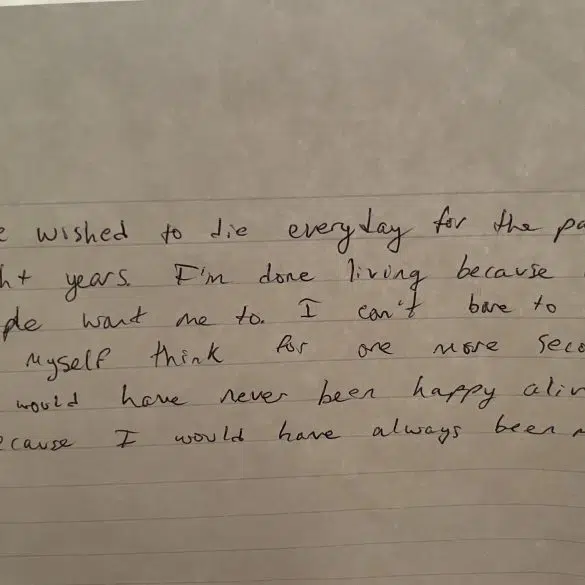 e wished to die everyday for the pa
ht years. I'm done living because
ple want me to. I can't bare to
myself think for one more seco
would have never been happy aliv
ecause I would have always been